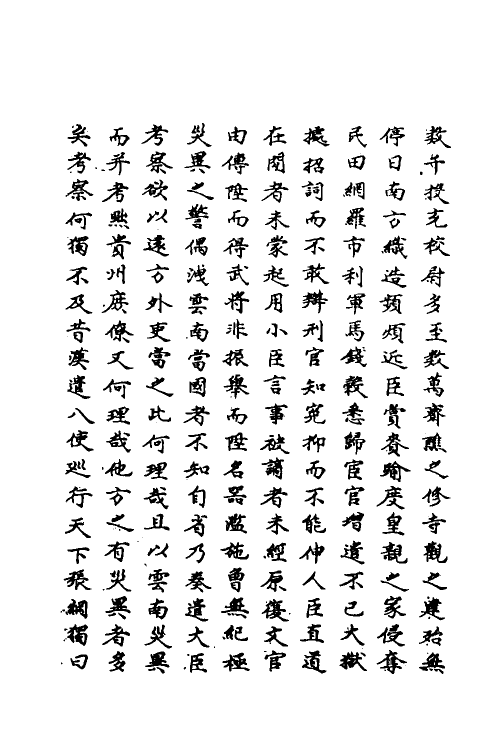 數千投充校尉多至數萬齋醮之修寺觀之建殆無
停日南方織造頻煩近臣賞賚踰度皇親之家侵奪
民田網羅市利軍馬錢穀悉歸宦官增遣不已大獄
據招詞而不敢辯刑官知冤抑而不能伸人臣直道
在閒者未蒙起用小臣言事被謫者未經原復文官
由傳陞而得武將非振舉而陞名器濫施曾無紀極
災異之警偶洩雲南當國者不知自省乃奏遣大臣
考察欲以遠方外吏當之此何理哉且以雲南災異
而并考黜貴州庶僚又何理哉他方之有災異者多
矣考察何獨不及昔漢遣八使巡行天下張綱獨曰